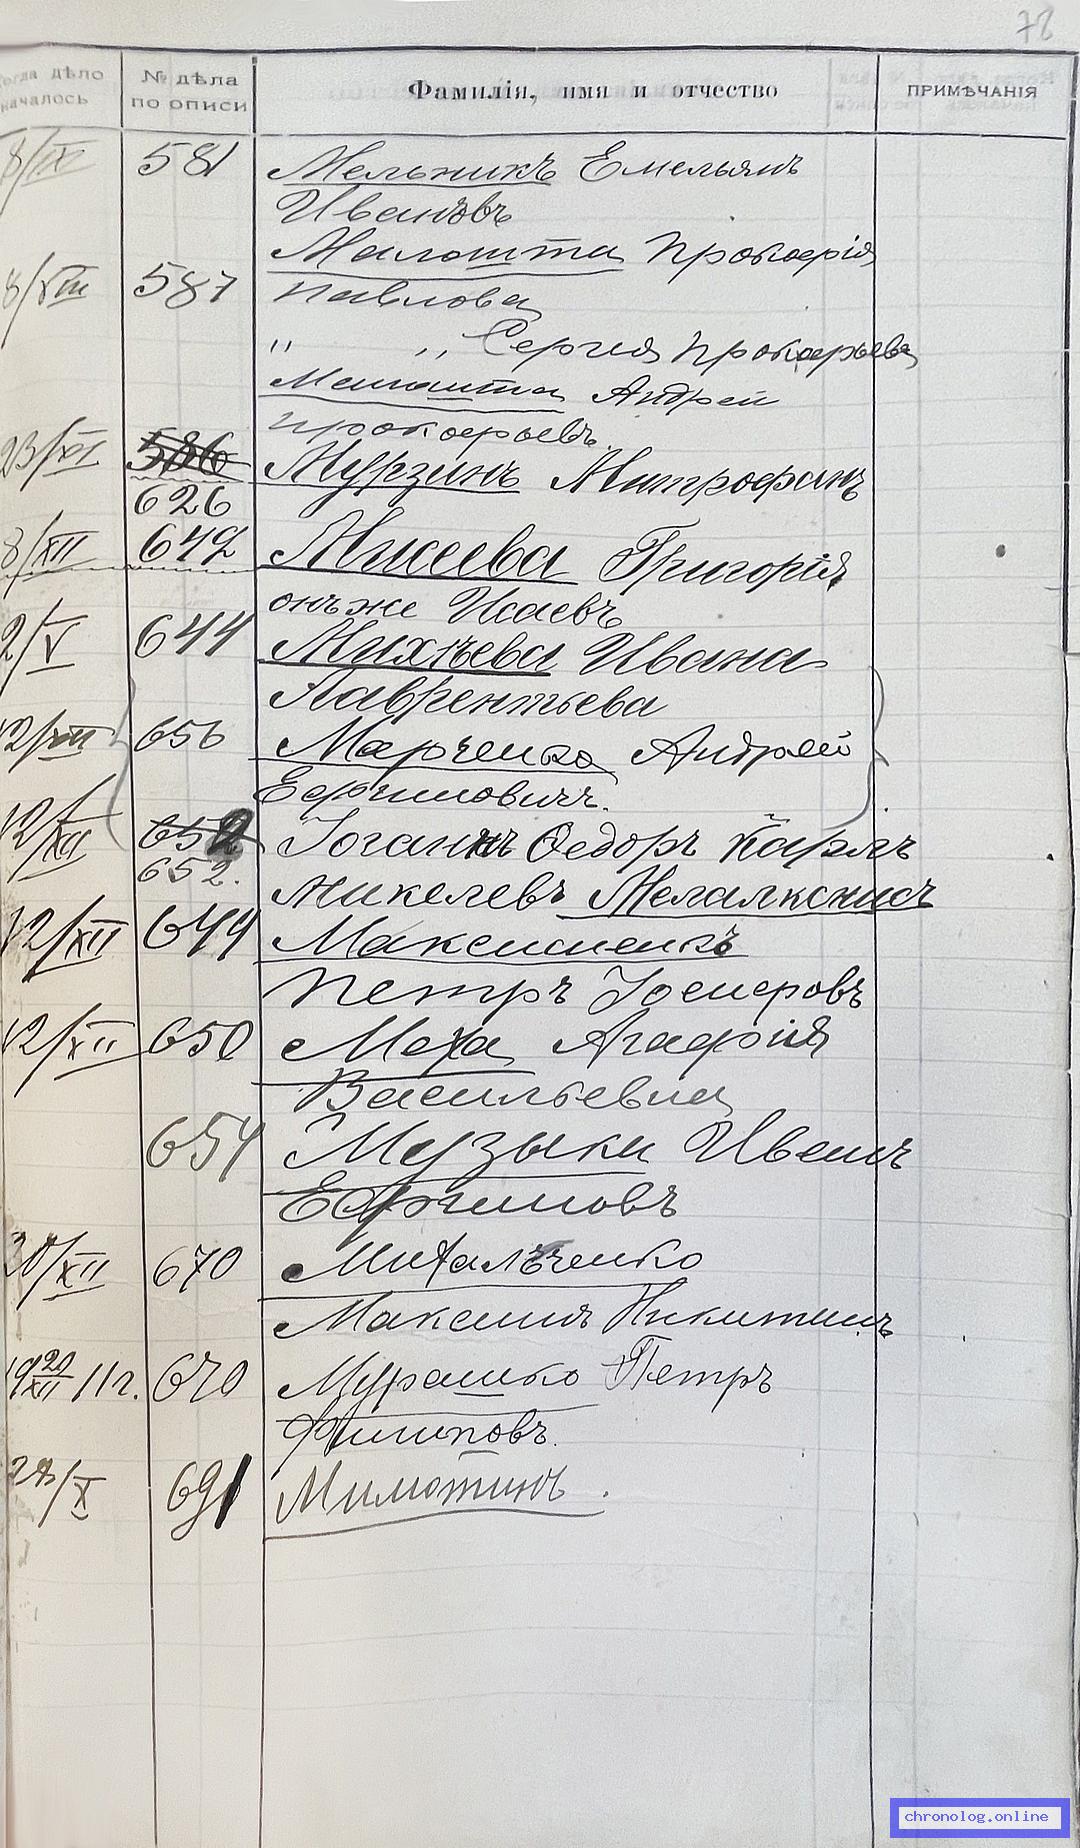 78
Когда дѣло началось
№ дѣла по описи
Фамилія, имя и отчество
ПРИМѢЧАНІЯ
8/IX 581 Мельникъ Емельянъ
Ивановъ
Малошта Прокофія
8/VIII 587 Павлова
" " Сергія Прокофьева
Малошта Андрей
Прокофьевъ.
23/XI 586 Мурзинъ Митрофанъ
626
8/XII 642 Мисеева Григорія
онъ же Исаевъ
2/V 644 Михѣева Ивана
Лаврентьева
12/XII 656 Марченко Андрей
Ефимовичъ.
12/XII 652 Іоганнъ Федоръ Карлъ
652.
Микелевъ
12/XII 649 Максименкъ
Петръ Іосифовъ
12/XII 650 Моха Агафія
Васильевна
654 Музыки Иванъ
Ефимовъ
30/XII 670 Михальченко
Максимъ Никитинъ
19 20/XII 11 г. 670 Мурашко Петръ
Филиповъ.
28/X 691 Милютинъ.
chronolog.online